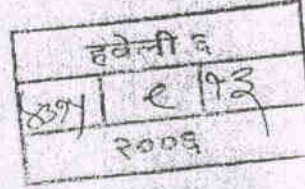 हवेली ६
४३१५ ९ १३
२००६